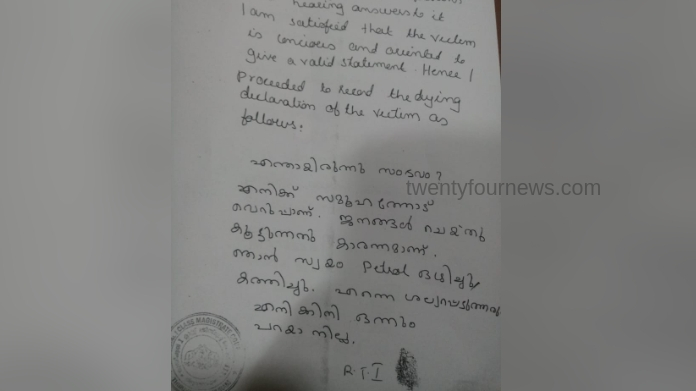 hearing answers to it
I am satisfied that the victim
is concious and oriented to
give a valid statement. Hence I
Proceeded to record the dying
declaration of the victim as
follows:
എന്തായിരുന്നു സംഭവം?
എനിക്ക് സമൂഹത്തോട്
വെറുപ്പാണ്. ജനങ്ങൾ ചെയ്തു
കൂട്ടുന്നതു കാരണമാണ്.
ഞാൻ സ്വയം Petrol ഒഴിച്ചു
കത്തിച്ചു. എന്നെ
എനിക്കിനി ഒന്നും
പറയാനില്ല.
R.T.I
twentyfournews.com